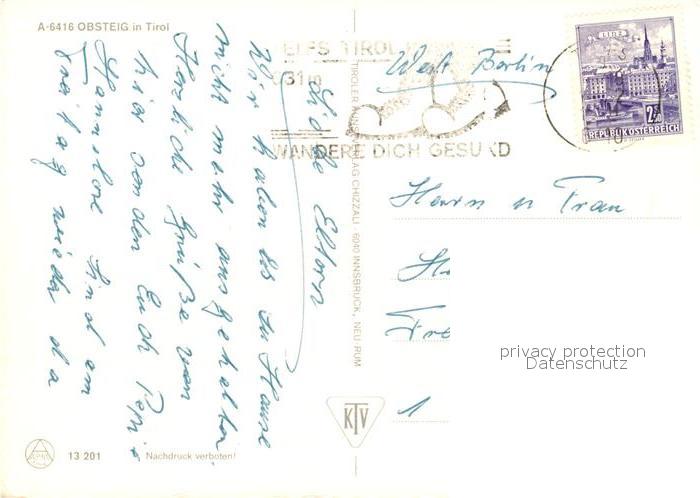 A-6416 OBSTEIG in Tirol
Liebe Eltern
Wir haben es zu Hause
nicht mehr ausgehalten.
Herzliche Grüße von
hier senden Euch Pepi +
Hannelore. Sind am
Freitag wieder da
ELFS TIROL
931 m
WANDERE DICH GESUND
LINZ
2.50
REPUBLIK ÖSTERREICH
West Berlin
Herrn u Frau
1
privacy protection
Datenschutz
TIROLER KUNSTVERLAG CHIZZALI · 6040 INNSBRUCK, NEU-RUM
KTV
13 201
Nachdruck verboten!